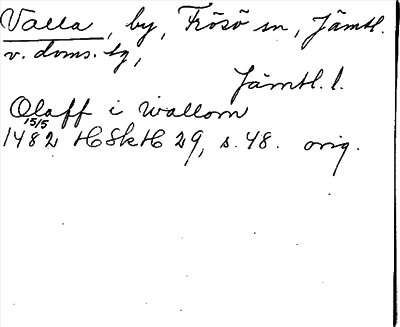 Valla, by, Frösö sn, Jämtl.
v. doms. tg,
Jämtl. l.
Olaff i wallom
15/5
1482 HSkH 29, s. 48. orig.